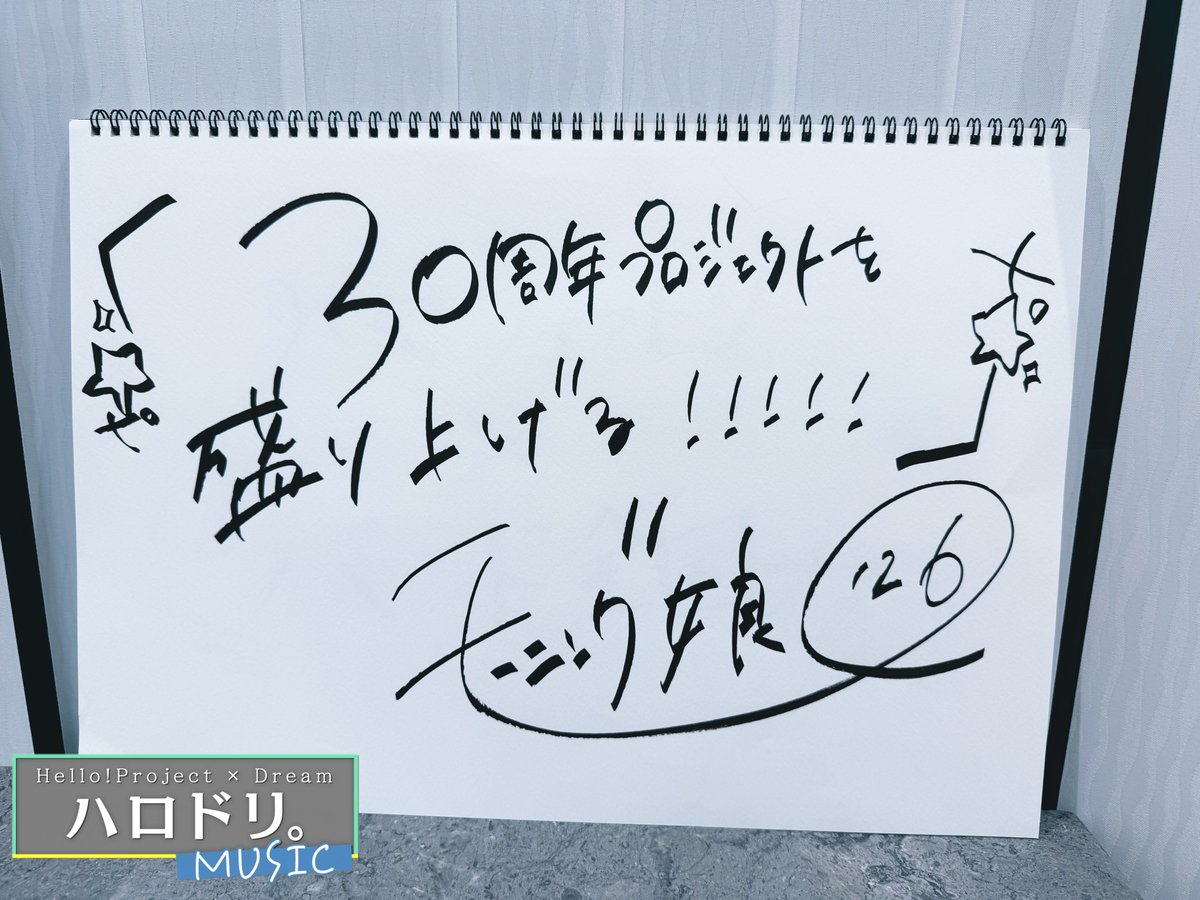 30周年プロジェクトを
盛り上げる!!!!!
モーニング娘'26
Hello!Project × Dream
ハロドリ。
MUSIC